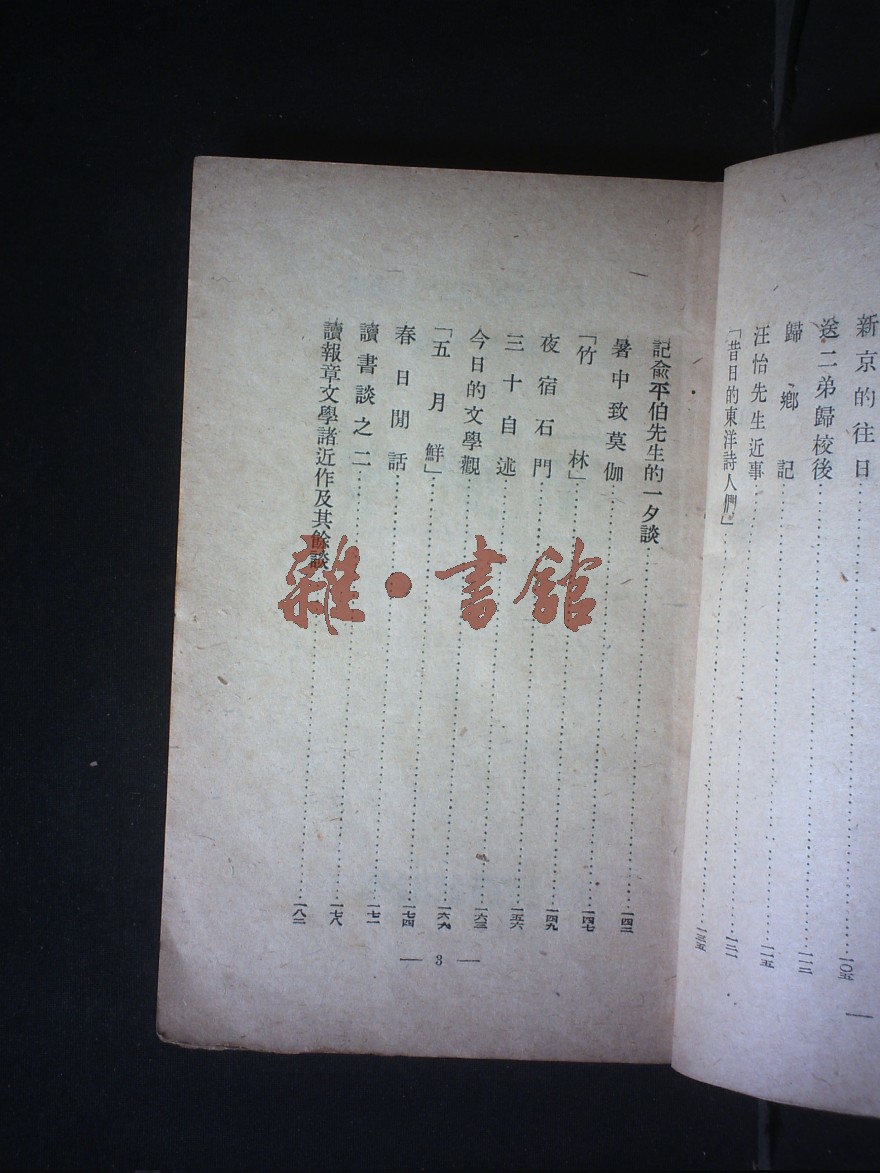 新京的往日……一〇五
送二弟歸校後……一一二
歸鄉記……一一五
汪怡先生近事……一二一
「昔日的東洋詩人們」……一三五
記俞平伯先生的一夕談……一四二
暑中致莫伽……一四七
「竹林」……一四九
夜宿石門……一五六
三十自述……一六三
今日的文學觀……一六九
「五月鮮」……一七四
春日閒話……一七一
讀書談之二……一七八
讀報章文學諸近作及其餘談……一八二
— 3 —
雜·書館